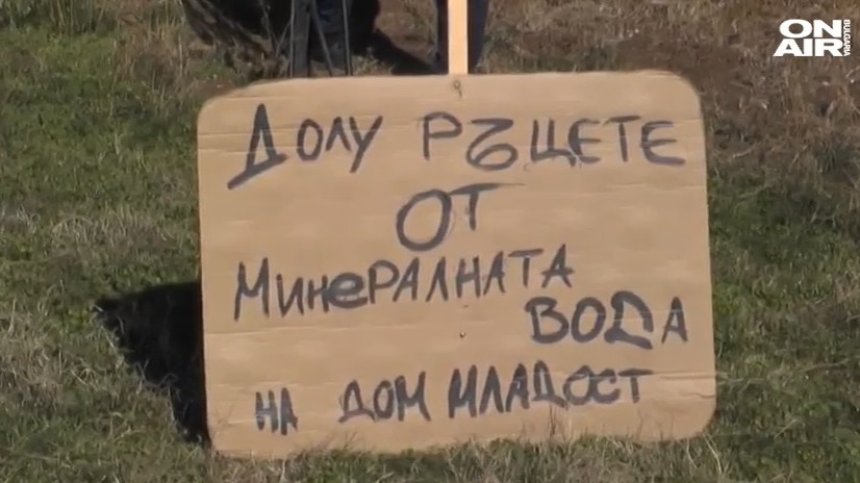 ON AIR BULGARIA
ДОЛУ РЪЦЕТЕ
ОТ
МИНеРАЛНАТА
ВОДА
НА ДОМ МЛАДОСТ